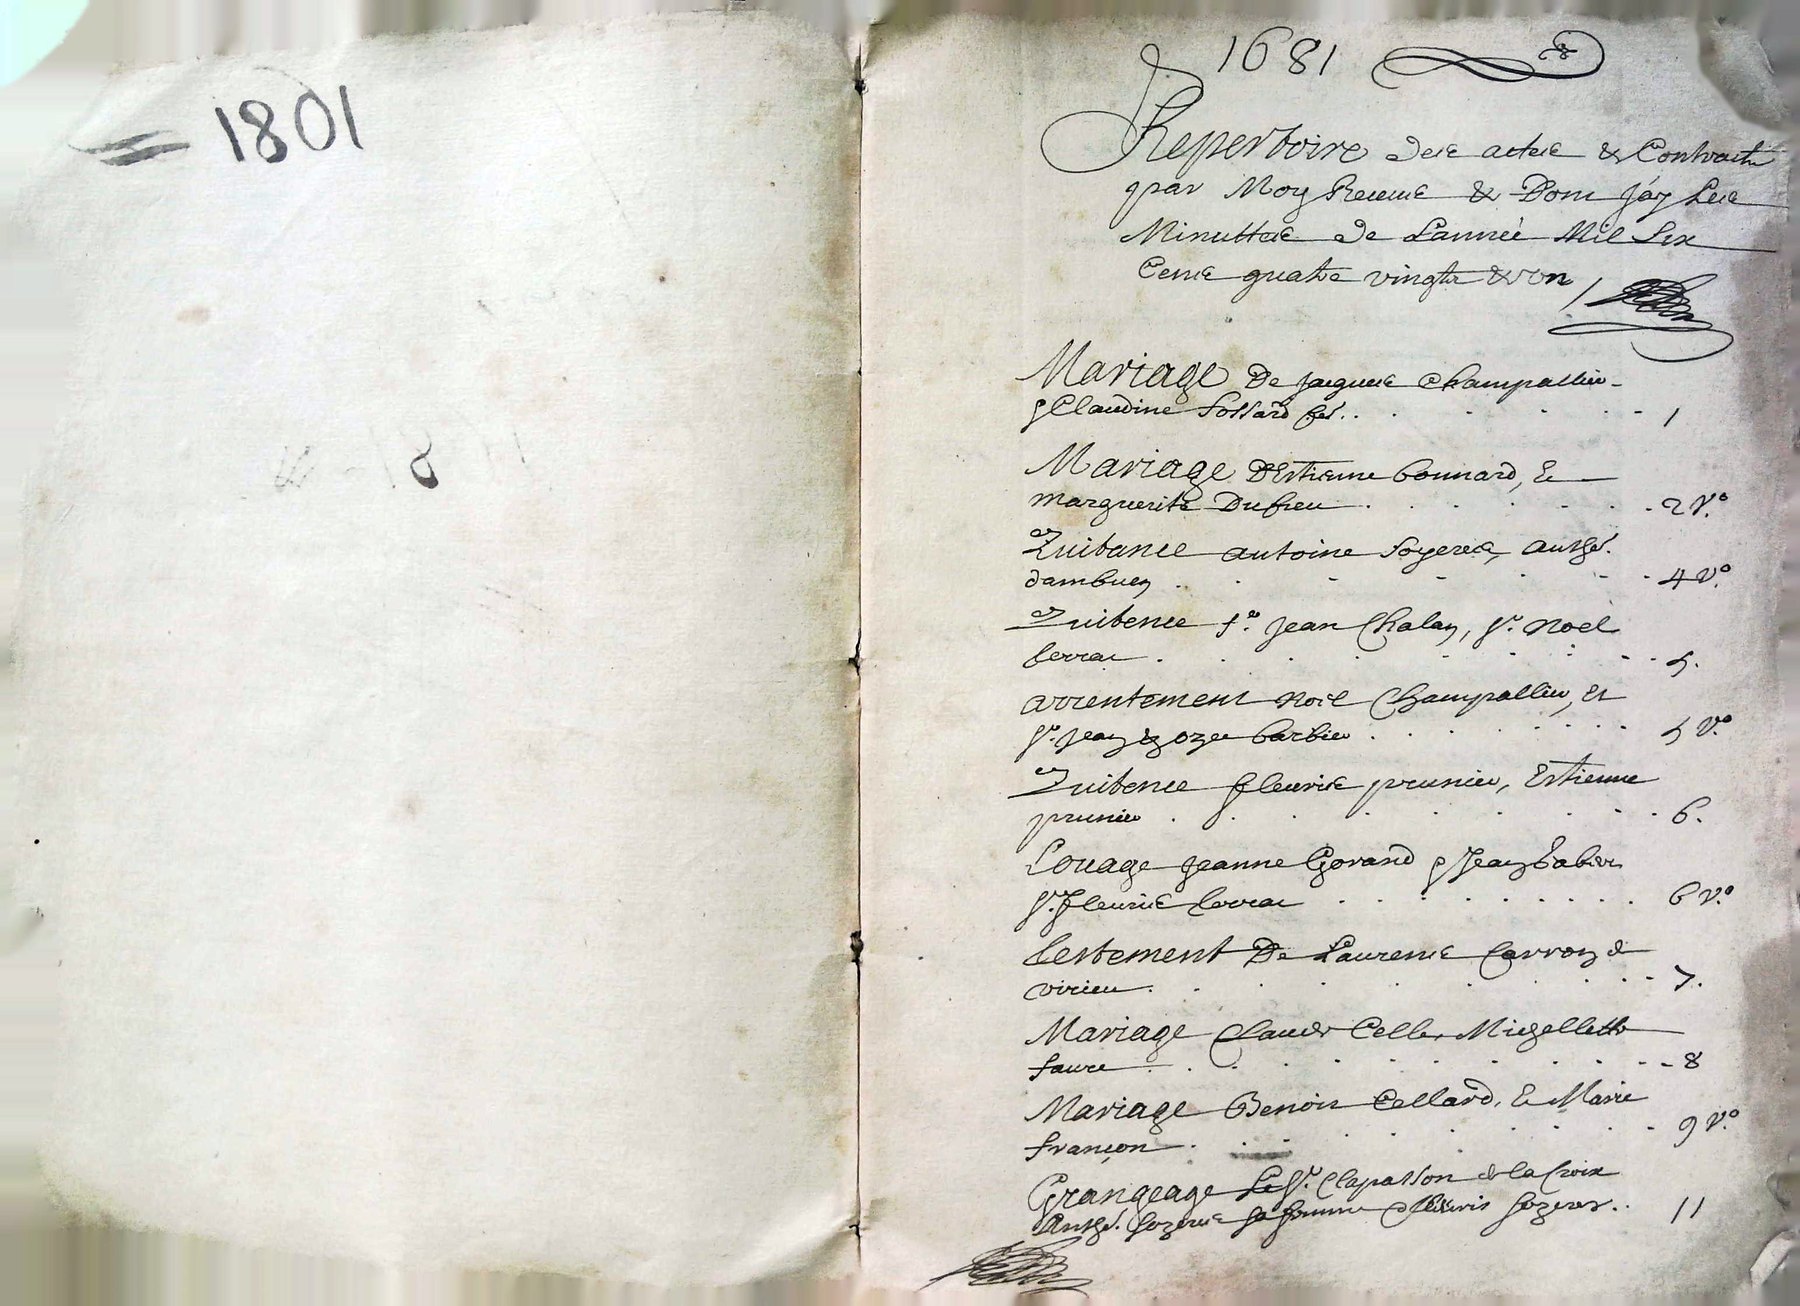 1801
1681
Repertoire des actes & Contracts
par Moy Receus & Dont Jay Les
Minuttes de Lannéé Mil Six
Cens quatre vingts & Un
Mariage De Jacques Champallier
& Claudine 1
Mariage D'Estienne bonnard, &
marguerite Dufieu 2 V.º
Quitance antoine anthe.
4 V.º
Quitence Sr. Jean Chalay, Sr. Noel
5.
arrentement Noel Champallier, et
Sr. Jean & barbier 5 V.º
Quitence fleurie prunier, Estienne
prunier 6.
Louage Jeanne Gorand Jean
Sr. fleurie 6 V.º
testement De Laurens de
virieu 7.
Mariage Claude Celle, Michellette
faure 8
Mariage Benoit Cellard, & Marie
françon 9 V.º
Grangeage Le Sr. Clapasson de la Croix
Anthe. sa femme 11